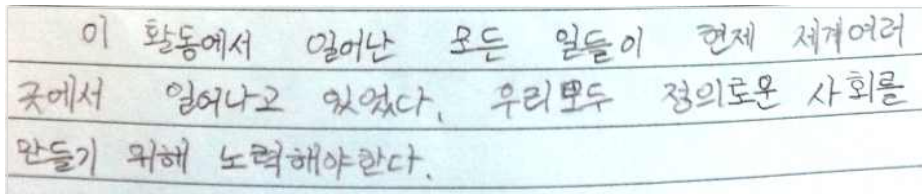 이 활동에서 일어난 모든 일들이 현재 세계여러
곳에서 일어나고 있었다. 우리모두 정의로운 사회를
만들기 위해 노력해야한다.